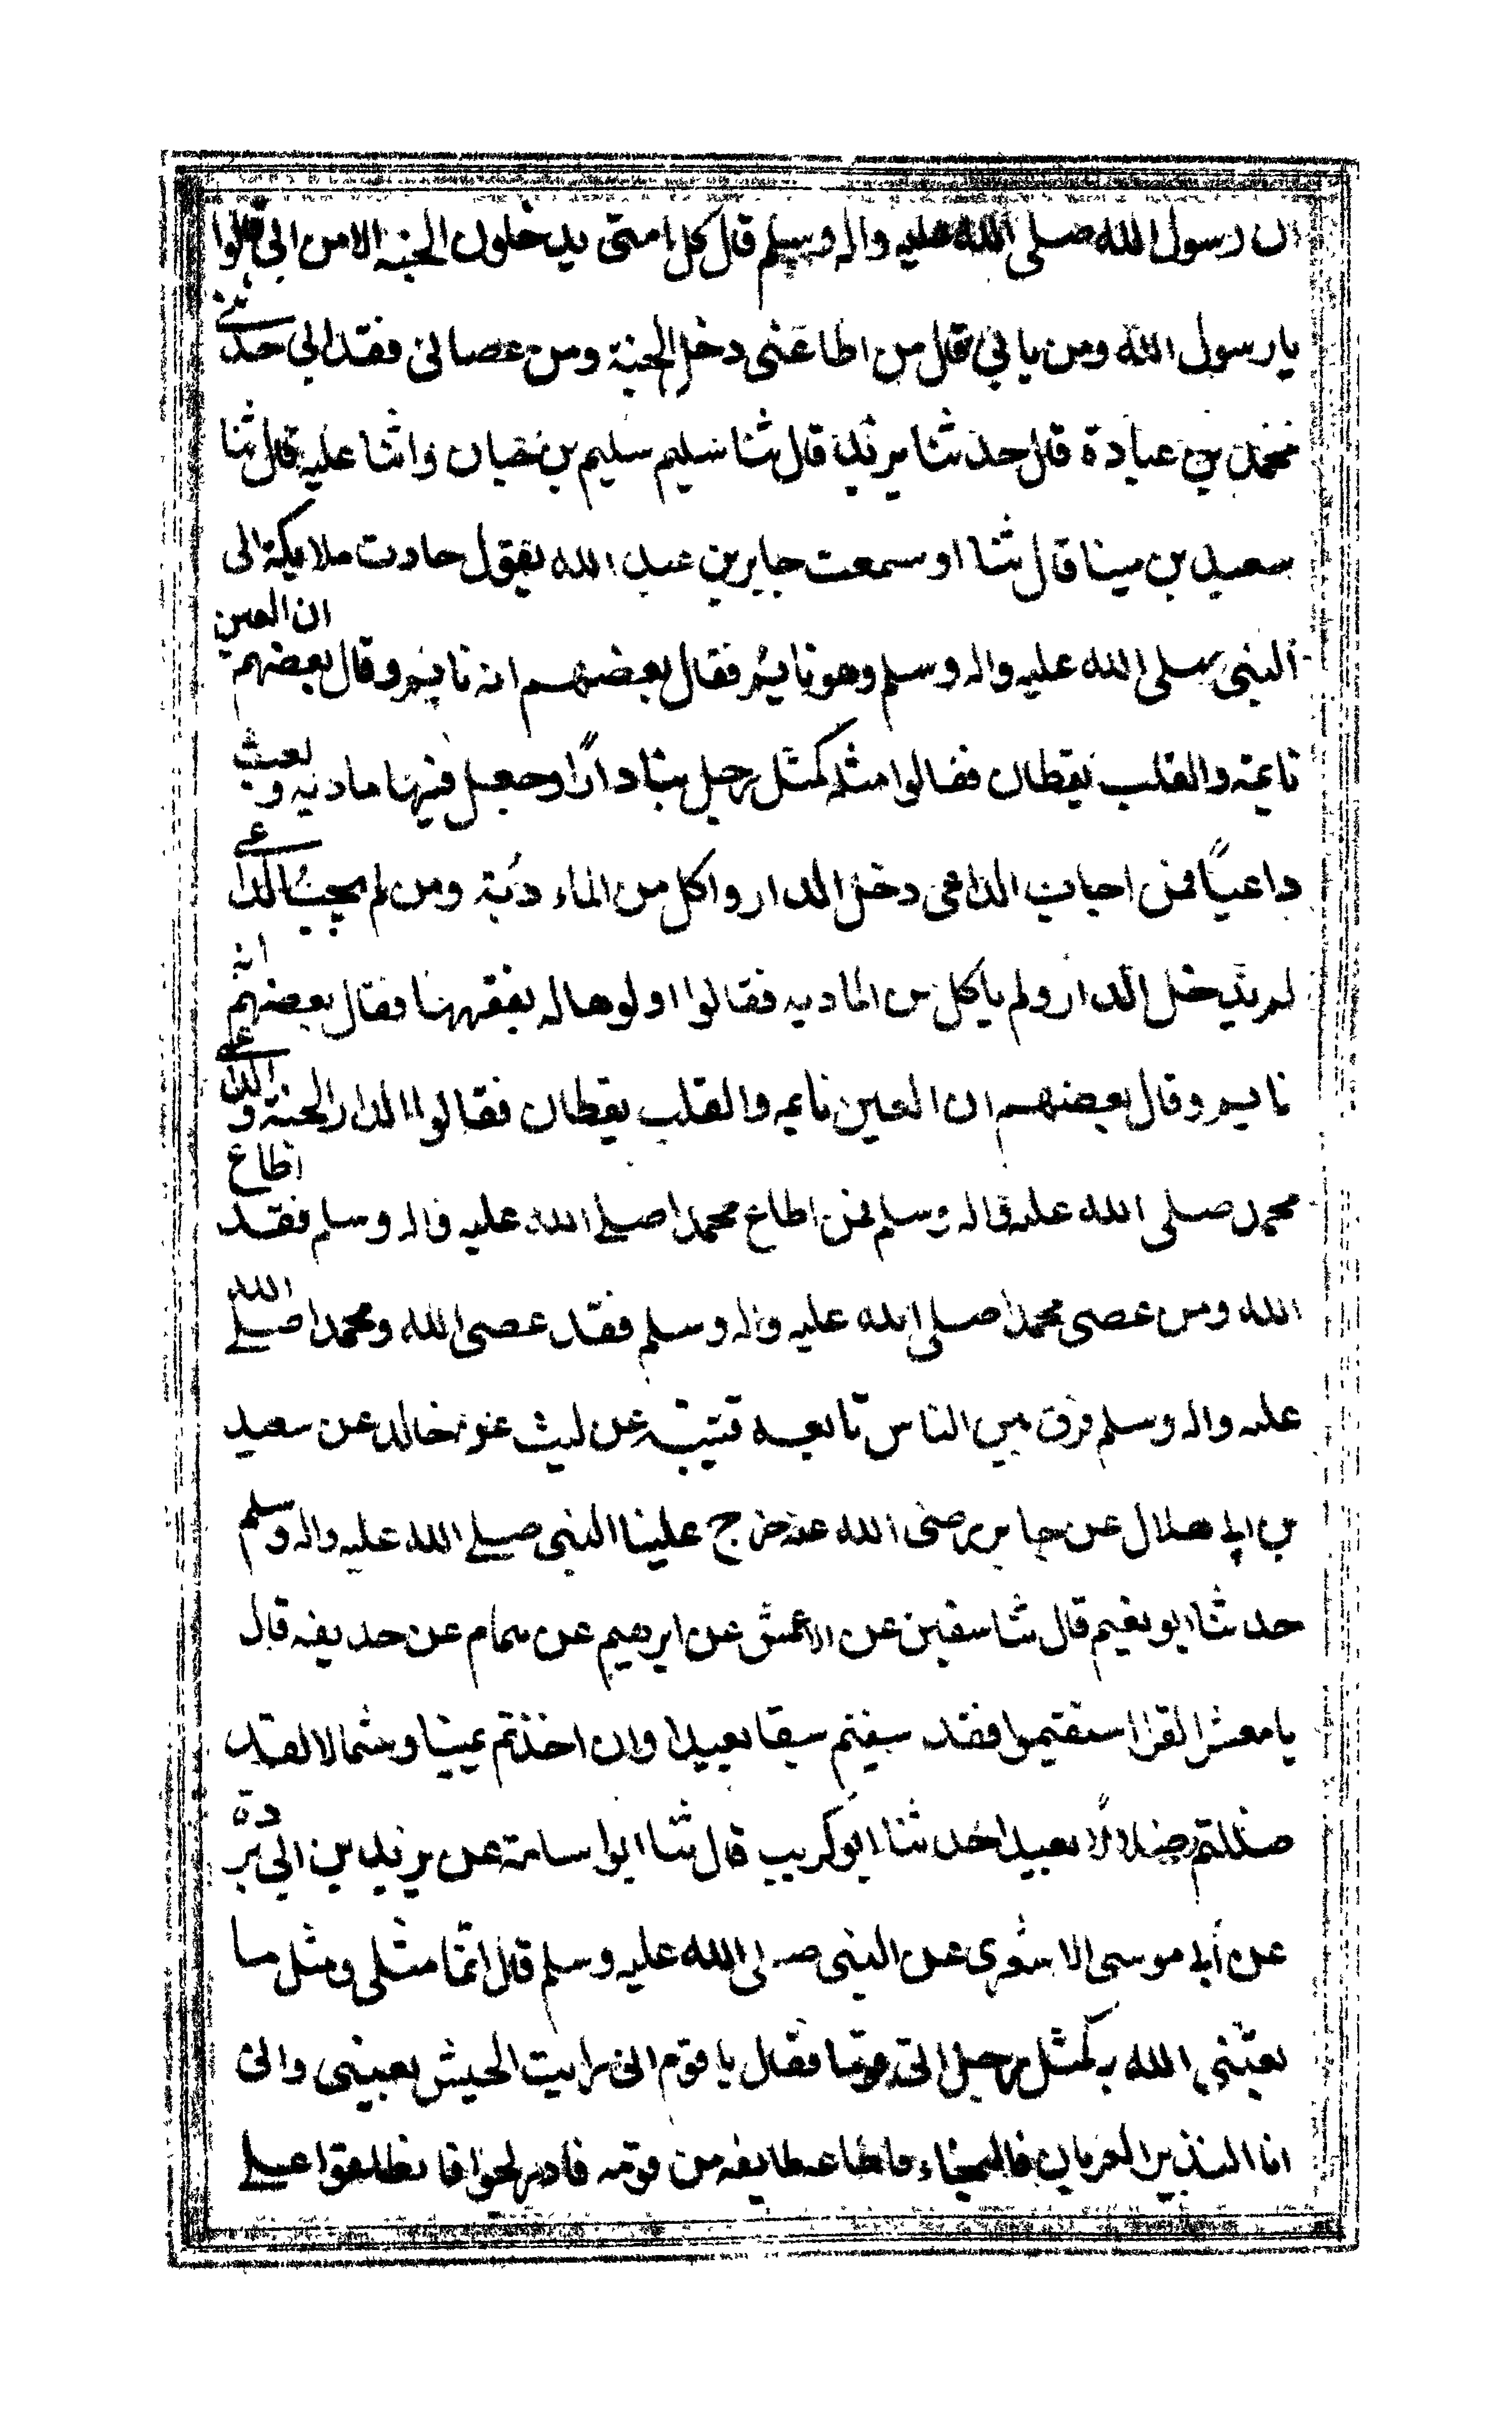 ان رسول الله صلى الله عليه واله وسلم قال كل امتى يدخلون الجنة الا من ابي قالوا
يا رسول الله ومن يابي قال من اطاعنى دخل الجنة ومن عصانى فقد ابي حدثنى
محمد بن عبادة قال حدثنا يزيد قال ثنا سليم سليم بن حبان واثنا عليه قال ثنا
سعيد بن مينا قال ثنا او سمعت جابر بن عبد الله يقول جاءت ملايكة الى
النبى صلى الله عليه واله وسلم وهو نايم فقال بعضهم انه نايم وقال بعضهم ان العين
نايمة والقلب يقظان فقالوا مثله كمثل رجل بنا دارًا وجعل فيها مادبه وبعث
داعيًا فمن اجاب الداعى دخل الدار واكل من الماء دبة ومن لم يجب الداعى
لم يدخل الدار ولم ياكل من المادبه فقالوا اولوها له يفقهها فقال بعضهم انه
نايم وقال بعضهم ان العين نايمه والقلب يقظان فقالوا الدار الجنة والداعى
محمد صلى الله عليه واله وسلم فمن اطاع محمدا صلى الله عليه واله وسلم فقد اطاع
الله ومن عصى محمدا صلى الله عليه واله وسلم فقد عصى الله ومحمدا صلى الله
عليه واله وسلم فرق بين الناس تابعه قتيبة عن ليث عن خالد عن سعيد
بن ابى هلال عن جابر رضى الله عنه خرج علينا النبى صلى الله عليه واله وسلم
حدثنا ابو نعيم قال ثنا سفين عن الاعمش عن ابرهيم عن همام عن حذيفه قال
يا معشر القرا استقيموا فقد سبقتم سبقا بعيدا وان اخذتم يمينا وشمالا لقد
ضللتم ضلالًا بعيدا حدثنا ابو كريب قال ثنا ابوا سامة عن بريد بن ابى بردة
عن أبى موسى الاشعرى عن النبى صلى الله عليه وسلم قال انما مثلى ومثل ما
بعثنى الله به كمثل رجل اتى قوما فقال يا قوم انى رايت الجيش بعينى وانى
انا النذير العريان فالنجاء فاطاعه طايفه من قومه فادلجوا فانطلقوا على